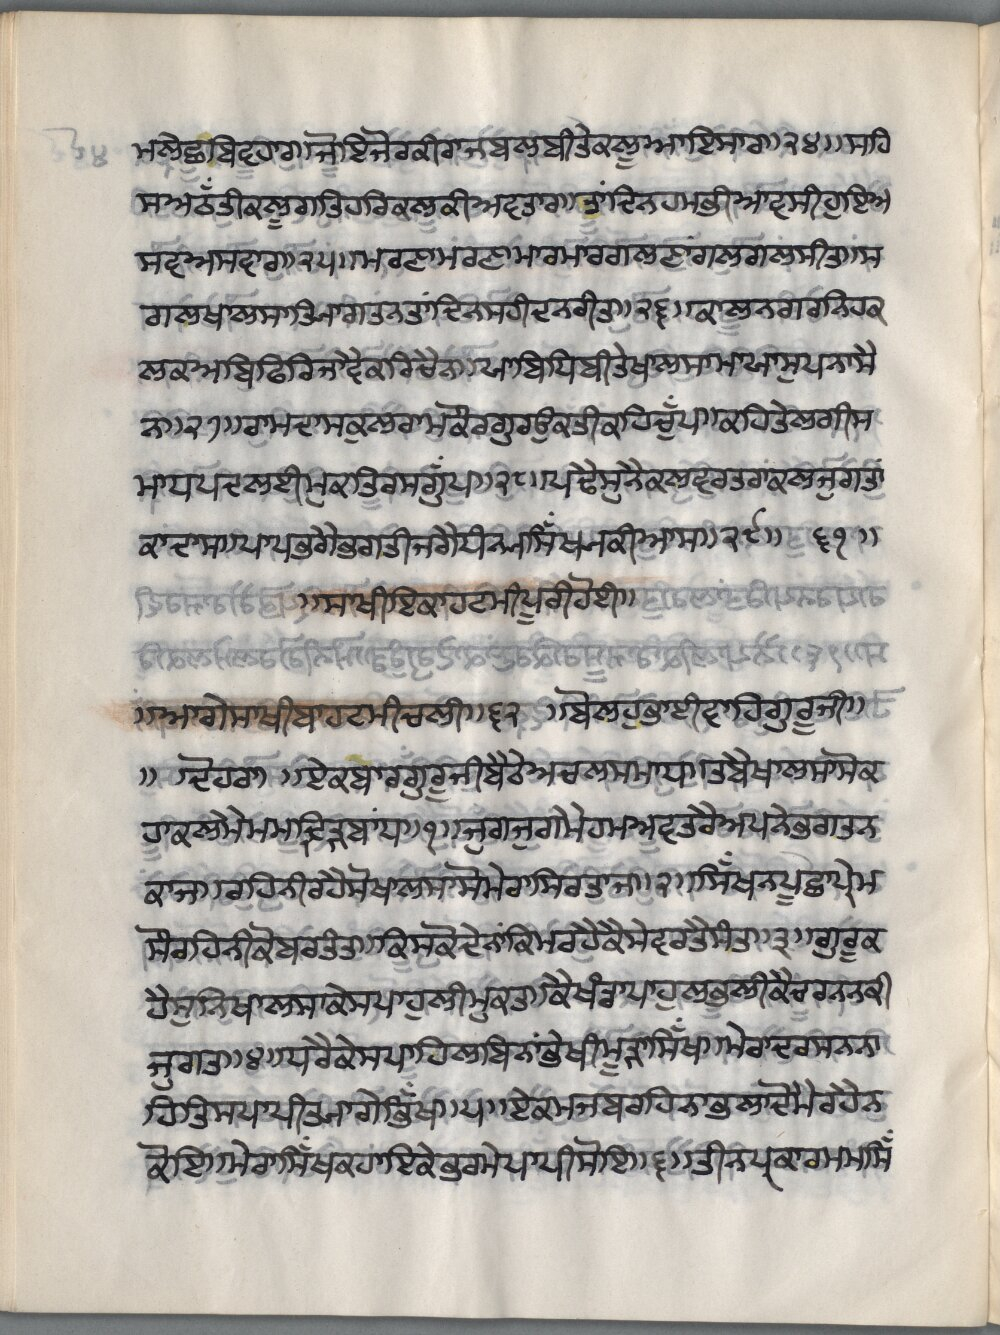 ਮਲੇਛਾਬਿਵਹਾਰ॥ਜੋਇਜੋਰਕੀਰਾਜਬਲੁਬੀਤੇਕਲੂਆਇਸਾਰ॥੨੪॥ਸਹਿ
ਸਅਠੱਤੀਕਲੂਗਤਿਹਰਿਕਲਕੀਅਵਤਾਰ॥ਤਾਂਦਿਨਹਮਭੀਆਵਸੀਹੁਇਅ
ਸਵਅਸਵਾਰ॥੨੫॥ਮਰਣਾਮਰਣਾਮਾਰਮਾਰਗਲਣਾਂਗਲੁਗਲੁਸੀਤਾ॥ਸ
ਗਲਖਾਲਸਾਤਿਆਗਤਨਤਾਂਦਿਨਸਹੀਦਨਰੀਤ॥੨੬॥ਕਾਲੂਨਗਰਨਿਹਕ
ਲਕਅਬਿਫਿਰਿਜਾਵੈਕਰਿਚੈਨ॥ਆਬਿਧਿਬੀਤੇਖਾਲਸਾਮਾਆਸੁਪਨਾਸੈ
ਨ॥੨੭॥ਰਾਮਦਾਸਕੁਲਰਾਮਕੌਰਗੁਰਉਕਤੀਕਹਿਚੁੱਪ॥ਕਹਿਤੇਲਗੀਸ
ਮਾਧਪਦਲਈਮੁਕਤਿਰਸਗੁੱਪ॥੨੮॥ਪੜੈਸੁਨੈਕਲੁਵਰਤਰਾਂਕਲਜੁਗਤਾਂ
ਕਾਦਾਸ॥ਪਾਪਭਗੈਭਗਤੀਜਗੈਧੀਨਆਸਿੱਖਅਕੀਆਸ॥੨੯॥ ੬੧॥
॥ਸਾਖੀਇਕਾਹਟਮੀਪੂਰੀਹੋਈ॥
॥ਆਗੇਸਾਖੀਬਾਹਟਮੀਚਲੀ॥੬੨ ॥ਬੋਲਹੁਭਾਈਵਾਹਿਗੁਰੂਜੀ॥
॥ ਦੋਹਰਾ ॥ਏਕਬਾਰਗੁਰੂਜੀਬੈਠੇਅਚਲਸਮਾਧ॥ਤਬੈਖਾਲਸਾਸੋਕ
ਹ੍ਯਕਲਮੈਮਮਦ੍ਰਿੜਬਾਂਧ॥੧॥ਜੁਗਜੁਗਮੈਹਮਅਵਤਰੈਅਪਨੇਭਗਤਨ
ਕਾਜ॥ਰਹਿਨੀਰਹੈਸੋਖਾਲਸਾਸੋਮੇਰਾਸਿਰਤਾਜ॥੨॥ਸਿੱਖਨਪੂਛਾਪ੍ਰੇਮ
ਸੌਰਹਿਨੀਕੋਬਰਤੀਤ॥ਕਿਸਕੋਦੇਨਾਂਕਿਮਰਹੈਕੈਸੇਵਰਤੈਮੀਤ॥੩॥ਗੁਰੂਕ
ਹੈਸੁਨਿਖਾਲਸਾਕੇਸਪਾਹੁਲੀਮੁਕਤ॥ਕੈਖੰਡਾਪਾਹੁਲਭਲੀਕੈਚਰਨਨਕੀ
ਜੁਗਤ॥੪॥ਧਰੈਕੇਸਪਾਹਿਲਬਿਨਾਂਭੇਖੀਮੂੜਾਸਿੱਖ॥ਮੇਰਾਦਰਸਨਨਾ
ਹਿਤਿਸਪਾਪੀਤਆਗੇਭਿੱਖ॥੫॥ਏਕਮਜਬਰਹਿਨਾਭਲਾਦੋਮੈਰਹੈਨ
ਕੋਇ॥ਮੇਰਾਸਿੱਖਕਹਾਇਕੇਭਰਮੇਪਾਪੀਸੋਇ॥੬॥ਤੀਨਪ੍ਰਕਾਰਮਮਸਿੱ